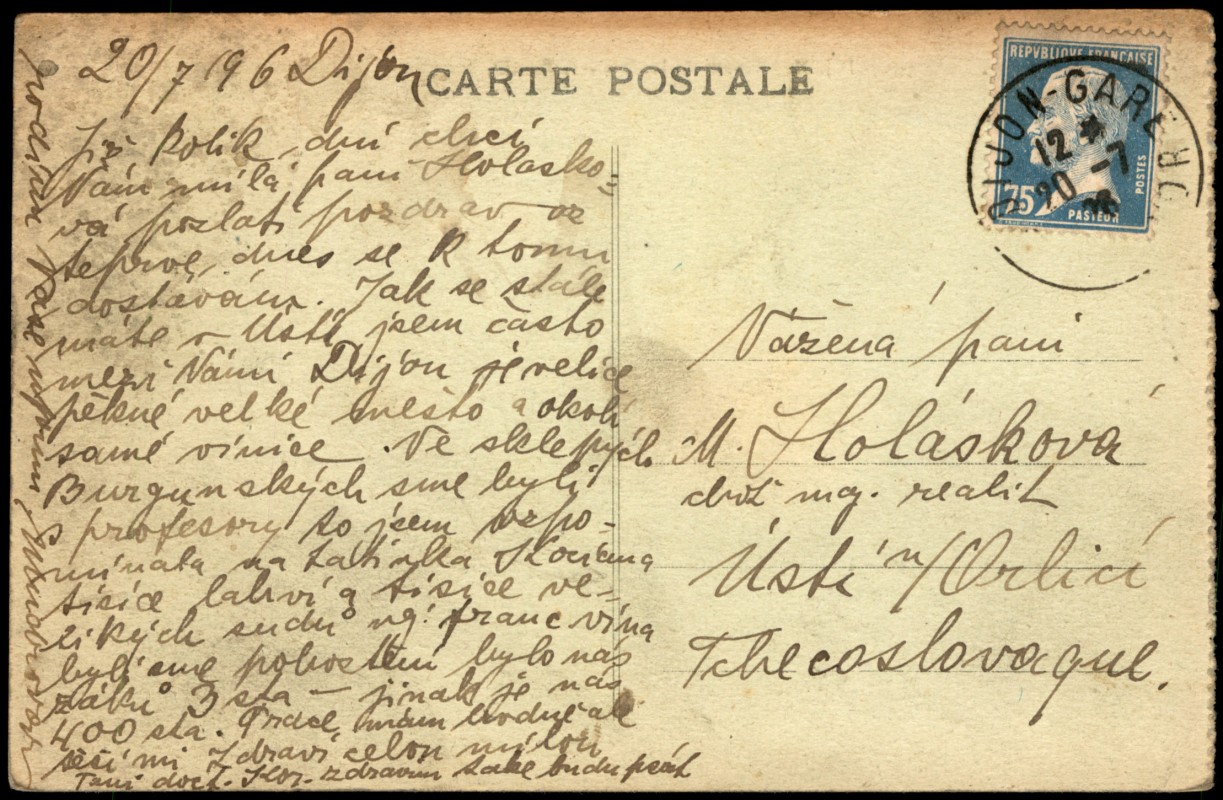 20/7 196 Dijon
CARTE POSTALE
Již kolik dní chci
Vám milá paní Holásko-
vá poslati pozdrav oz
teprve dnes se k tomu
dostávám. Jak se stále
máte v Ústí jsem často
mezi Vámi Dijon je velice
pěkné velké mesto a okolí
samé vinice. Ve sklepých
Burgunských sme byli
s profesory to jsem vzpo-
mínala na tatínka
tisíce lahví a tisíce ve-
likých sudů franc vína
byli sme pohostěni bylo nás
žáků 3 sta – jinak je nás
400 sta. Práce mám hodně ale
těší mi Zdraví celou milou
Paní doct. Kor. zdravím take budu psát
REPVBLIQUE FRANÇAISE
75
POSTES
PASTEUR
DIJON-GARE
12
20 -7
Vážená paní
M. Holásková
chož maj. realit
Ústí n/Orlicí
Tchecoslovaque.